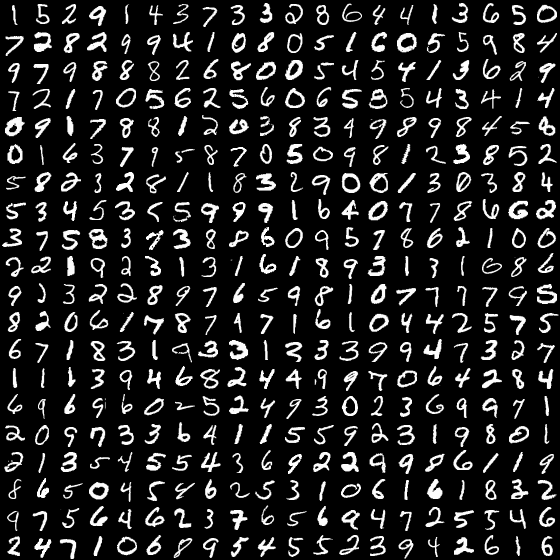 1 5 2 9 1 4 3 7 3 3 2 8 6 4 4 1 3 6 5 0
7 2 8 2 9 9 4 1 0 8 0 5 1 6 0 5 5 9 8 4
9 7 9 8 8 8 2 6 8 0 0 5 4 5 4 1 3 6 2 9
7 2 1 7 0 5 6 2 5 6 0 6 5 8 5 4 3 4 1 4
0 9 1 7 8 8 1 2 0 3 8 3 4 9 8 9 8 4 5 4
0 1 6 3 7 9 5 8 7 0 5 0 9 8 1 2 3 8 5 2
5 8 2 3 2 8 1 1 8 3 2 9 0 0 1 3 0 3 8 4
5 3 4 5 3 5 5 9 9 9 1 6 4 0 7 7 8 6 6 2
3 7 5 8 3 7 3 8 8 6 0 9 5 7 8 6 2 1 0 0
2 2 1 9 2 3 1 3 1 6 1 8 9 3 1 3 1 6 8 6
9 2 3 2 2 8 9 7 6 5 9 8 1 0 7 7 7 7 9 5
8 2 0 6 1 7 8 7 9 7 1 6 1 0 4 4 2 5 7 5
6 7 1 8 3 1 9 3 3 1 2 3 3 9 9 4 7 3 2 7
1 1 1 3 9 4 6 8 2 4 4 9 9 9 7 0 6 4 2 8 4
6 9 6 9 6 0 2 5 2 4 9 3 0 2 3 6 9 9 7 1
2 0 9 7 3 3 6 4 1 1 5 5 9 2 3 1 9 8 0 1
2 1 3 5 4 5 5 4 3 6 9 2 2 9 9 8 6 1 1 9
8 6 5 0 4 5 4 6 2 5 3 1 0 6 1 6 1 8 3 2
9 7 5 6 4 6 2 3 7 6 5 6 9 4 7 2 5 5 4 6
2 4 7 1 0 6 8 9 5 4 5 5 2 3 9 4 2 6 1 6